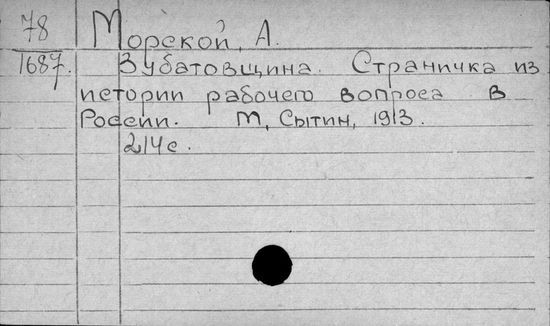 78
1687.
Морской, А.
Зубатовщина. Страничка из
истории рабочего вопроса в
России. М, Сытин, 1913.
214 с.